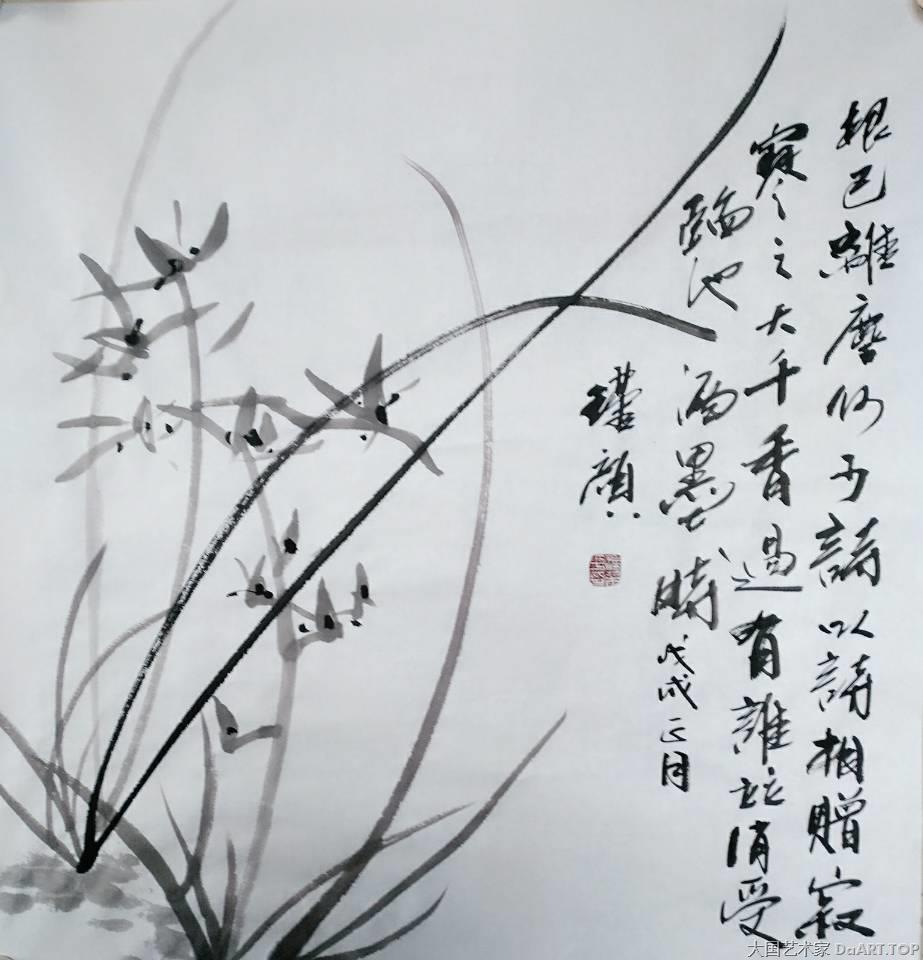 根已離塵何可詩以詩相贈寂
寥之大千香過有誰竝消受
臨池洒墨時戊戌正月
瑾顏
大国艺术家 DaART.TOP